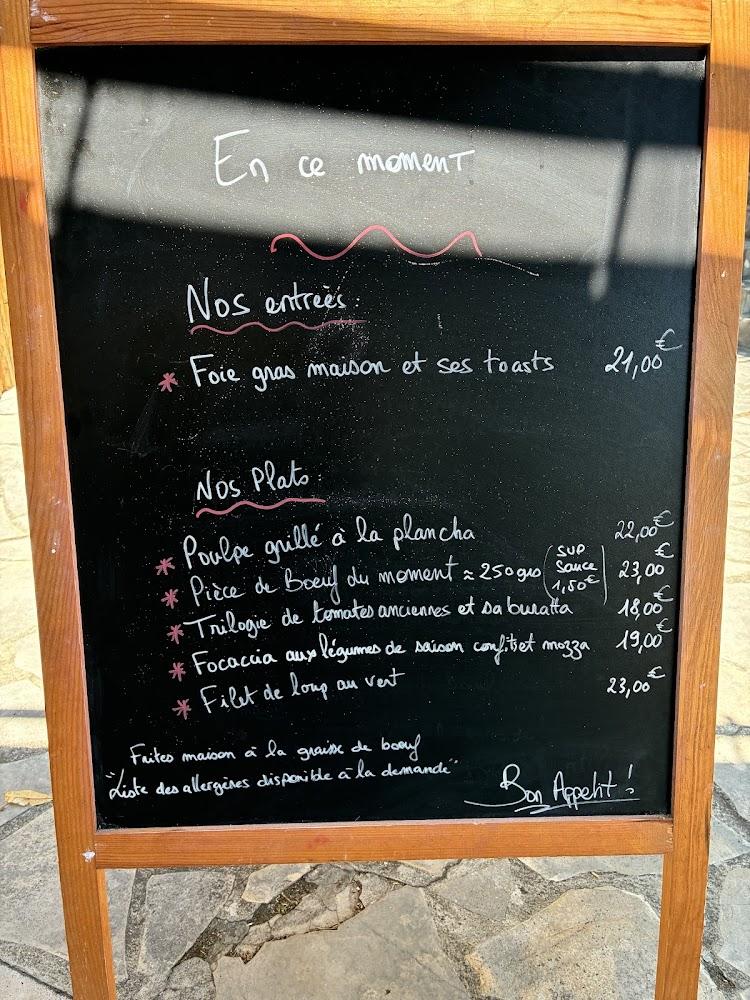 En ce moment
Nos entrées:
* Foie gras maison et ses toasts 21,00€
Nos Plats:
* Poulpe grillé à la plancha 22,00€
* Pièce de Boeuf du moment ≈ 250grs (SUP Sauce 1,50€) 23,00€
* Trilogie de tomates anciennes et sa buratta 18,00€
* Focaccia aux légumes de saison confits et mozza 19,00€
* Filet de loup au vert 23,00€
Frites maison à la graisse de boeuf
"Liste des allergènes disponible à la demande"
Bon Appétit !